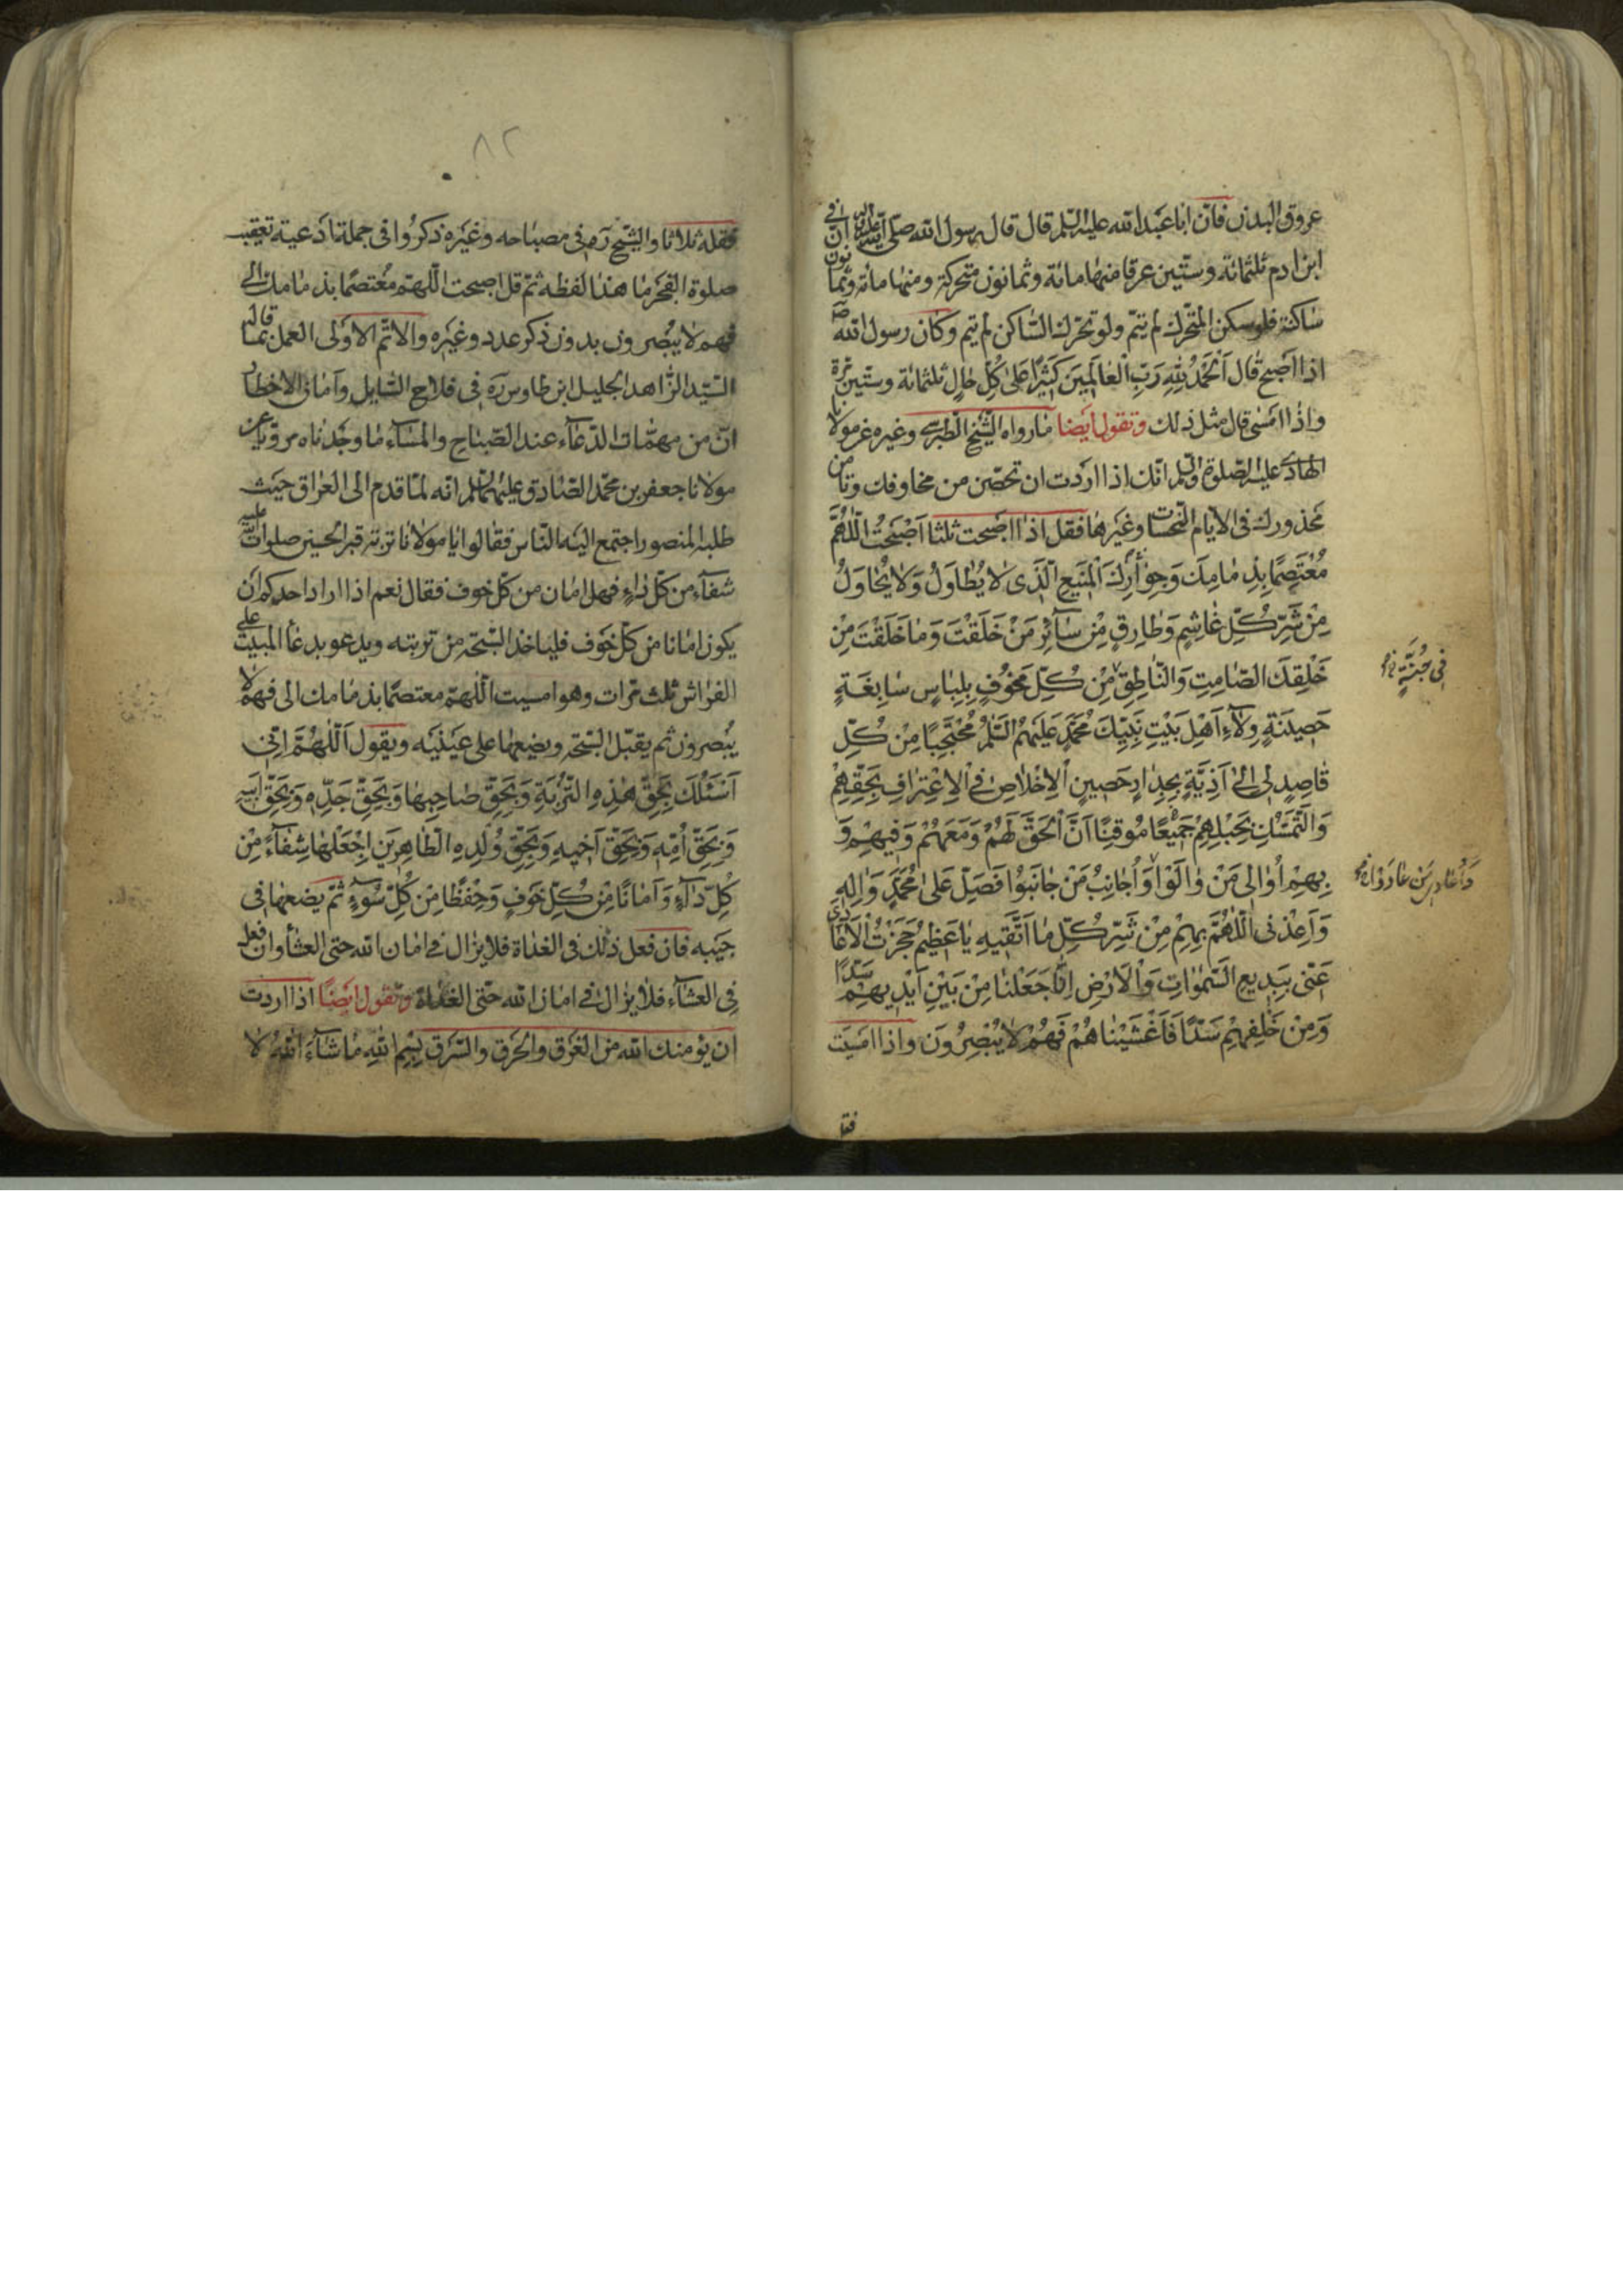 عروق البدن فانّ ابا عبدالله عليه السّلم قال قال رسول الله صلّى الله عليه وآله انّ فى
ابن ادم ثلثمائة وستّين عرقا منها مائة وثمانون متحركة ومنها مائة وثمانون
ساكنة فلو سكن المتحرّك لم يتمّ ولو تحرّك السّاكن لم يتم وكان رسول الله ص
اذا اصبح قال اَلْحَمْدُ لِلّٰهِ رَبِّ الْعٰالَمِينَ كَثِيرًا عَلىٰ كُلِّ حٰالٍ ثلثمائة وستّين مرّة
واذا امسى قال مثل ذلك وتقول ايضا ما رواه الشّيخ الطّبرسى وغيره عن مولانا
الهادى عليه الصّلوة والسّلم انّك اذا اردت ان تحصّن من مخاوفك وتأمن
محذورك فى الايام النّحسات وغيرها فقل اذا اصبحت ثلثا اَصْبَحْتُ اَللّٰهُمَّ
مُعْتَصِمًا بِذِمٰامِكَ وَجِوٰارِكَ الْمَنيعِ الَّذى لا يُطٰاوَلُ وَلا يُحٰاوَلُ
مِنْ شَرِّ كُلِّ غٰاشِمٍ وَطٰارِقٍ مِنْ سٰآئِرِ مَنْ خَلَقْتَ وَمٰا خَلَقْتَ مِنْ
خَلْقِكَ الصّٰامِتِ وَالنّٰاطِقِ مِنْ كُلِّ مَخُوفٍ بِلِبٰاسٍ سٰابِغَةٍ
فى جُنَّةٍ
حَصينَةٍ وِلآءِ اَهْلِ بَيْتِ نَبِيِّكَ مُحَمَّدٍ عَلَيْهِمُ السَّلٰمُ مُحْتَجِبًا مِنْ كُلِّ
قٰاصِدٍ لى اِلىٰ اَذِيَّةٍ بِجِدٰارٍ حَصينٍ الْاِخْلاصِ فِى الْاِعْتِرٰافِ بِحَقِّهِمْ
وَالتَّمَسُّكِ بِحَبْلِهِمْ جَميعًا مُوقِنًا اَنَّ الْحَقَّ لَهُمْ وَمَعَهُمْ وَفيهِمْ وَ
بِهِمْ اُوٰالى مَنْ وٰالَوْا وَاُجٰانِبُ مَنْ جٰانَبُوا فَصَلِّ عَلىٰ مُحَمَّدٍ وَاٰلِهِ
وَاَعِذْنى اللّٰهُمَّ بِهِمْ مِنْ شَرِّ كُلِّ مٰا اَتَّقيهِ يٰا عَظيمُ حَجَزْتُ الْاَعٰادى
عَنّى بِبَديعِ السَّمٰوٰاتِ وَالْاَرْضِ اِنّٰا جَعَلْنٰا مِنْ بَيْنِ اَيْديهِمْ سَدًّا
وَمِنْ خَلْفِهِمْ سَدًّا فَاَغْشَيْنٰاهُمْ فَهُمْ لا يُبْصِرُونَ واذا امسيت
فقل
٨٢
فقله ثلاثا والشّيخ ره فى مصباحه وغيره ذكروا فى جملة ادعية تعقيب
صلوة الفجر ما هذا لفظه ثمّ قل اصبحت اللّهمّ معتصما بذمامك الى
فهم لا يبصرون بدون ذكر عدد وغيره والاتمّ الاولى العمل بما قاله
السّيّد الزّاهد الجليل ابن طاوس ره فى فلاح السّايل وامان الاخطار
انّ من مهمّات الدّعآء عند الصّباح والمسآء ما وجدناه مرويّا عن
مولانا جعفر بن محمّد الصّادق عليهما السّلم انّه لمّا قدم الى العراق حيث
طلبه المنصور اجتمع اليه النّاس فقالوا يا مولانا تربة قبر الحسين صلوات الله عليه
شفآء من كلّ داء فهل امان من كلّ خوف فقال نعم اذا اراد احدكم ان
يكون امانا من كلّ خوف فلياخذ السّبحة من تربته ويدعو بدعآء المبيت على
الفراش ثلث مرات وهو امسيت اللّهمّ معتصما بذمامك الى فهم لا
يبصرون ثم يقبّل السّبحة ويضعها على عينيه ويقول اَللّٰهُمَّ اِنّى
اَسْئَلُكَ بِحَقِّ هٰذِهِ التُّرْبَةِ وَبِحَقِّ صٰاحِبِهٰا وَبِحَقِّ جَدِّهِ وَبِحَقِّ اَبيهِ
وَبِحَقِّ اُمِّهِ وَبِحَقِّ اَخيهِ وَبِحَقِّ وُلْدِهِ الطّٰاهِرينَ اِجْعَلْهٰا شِفٰآءً مِنْ
كُلِّ دٰآءٍ وَاَمٰانًا مِنْ كُلِّ خَوْفٍ وَحِفْظًا مِنْ كُلِّ سُوٓءٍ ثمّ يضعها فى
جيبه فان فعل ذلك فى الغداة فلا يزال فى امان الله حتى العشآء وان فعل
فى العشآء فلا يزال فى امان الله حتّى الغداة وتقول ايضًا اذا اردت
ان يؤمنك الله من الغرق والحرق والسّرق بِسْمِ اللّٰهِ مٰا شٰآءَ اللّٰهُ لا